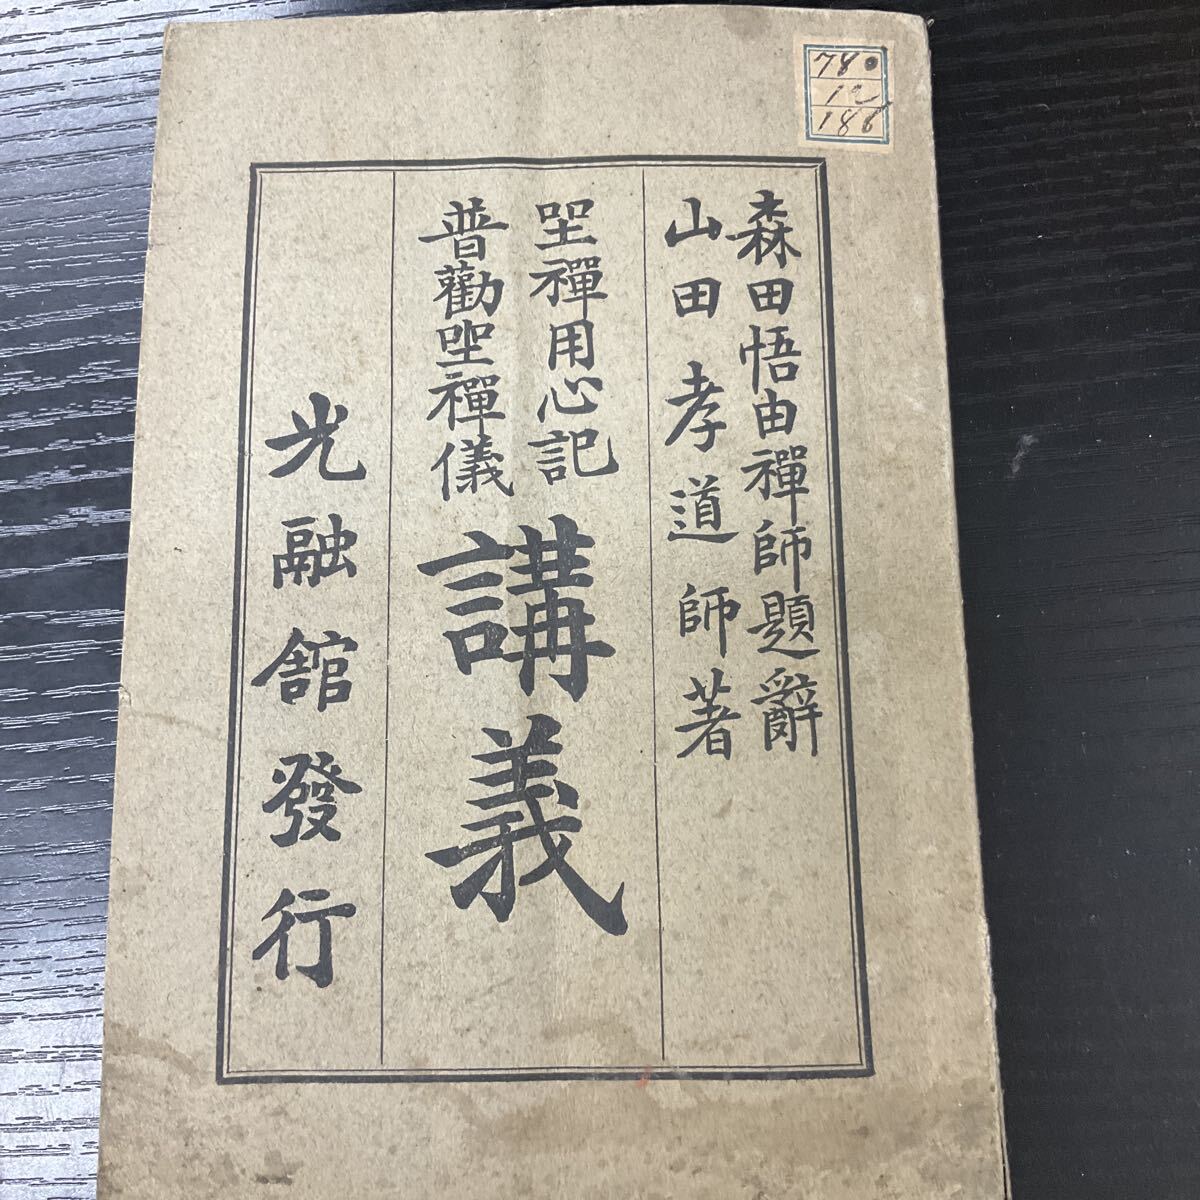 森田悟由禪師題辭
山田孝道師著
坐禪用心記
普勸坐禪儀
講義
光融館發行
780
12
186